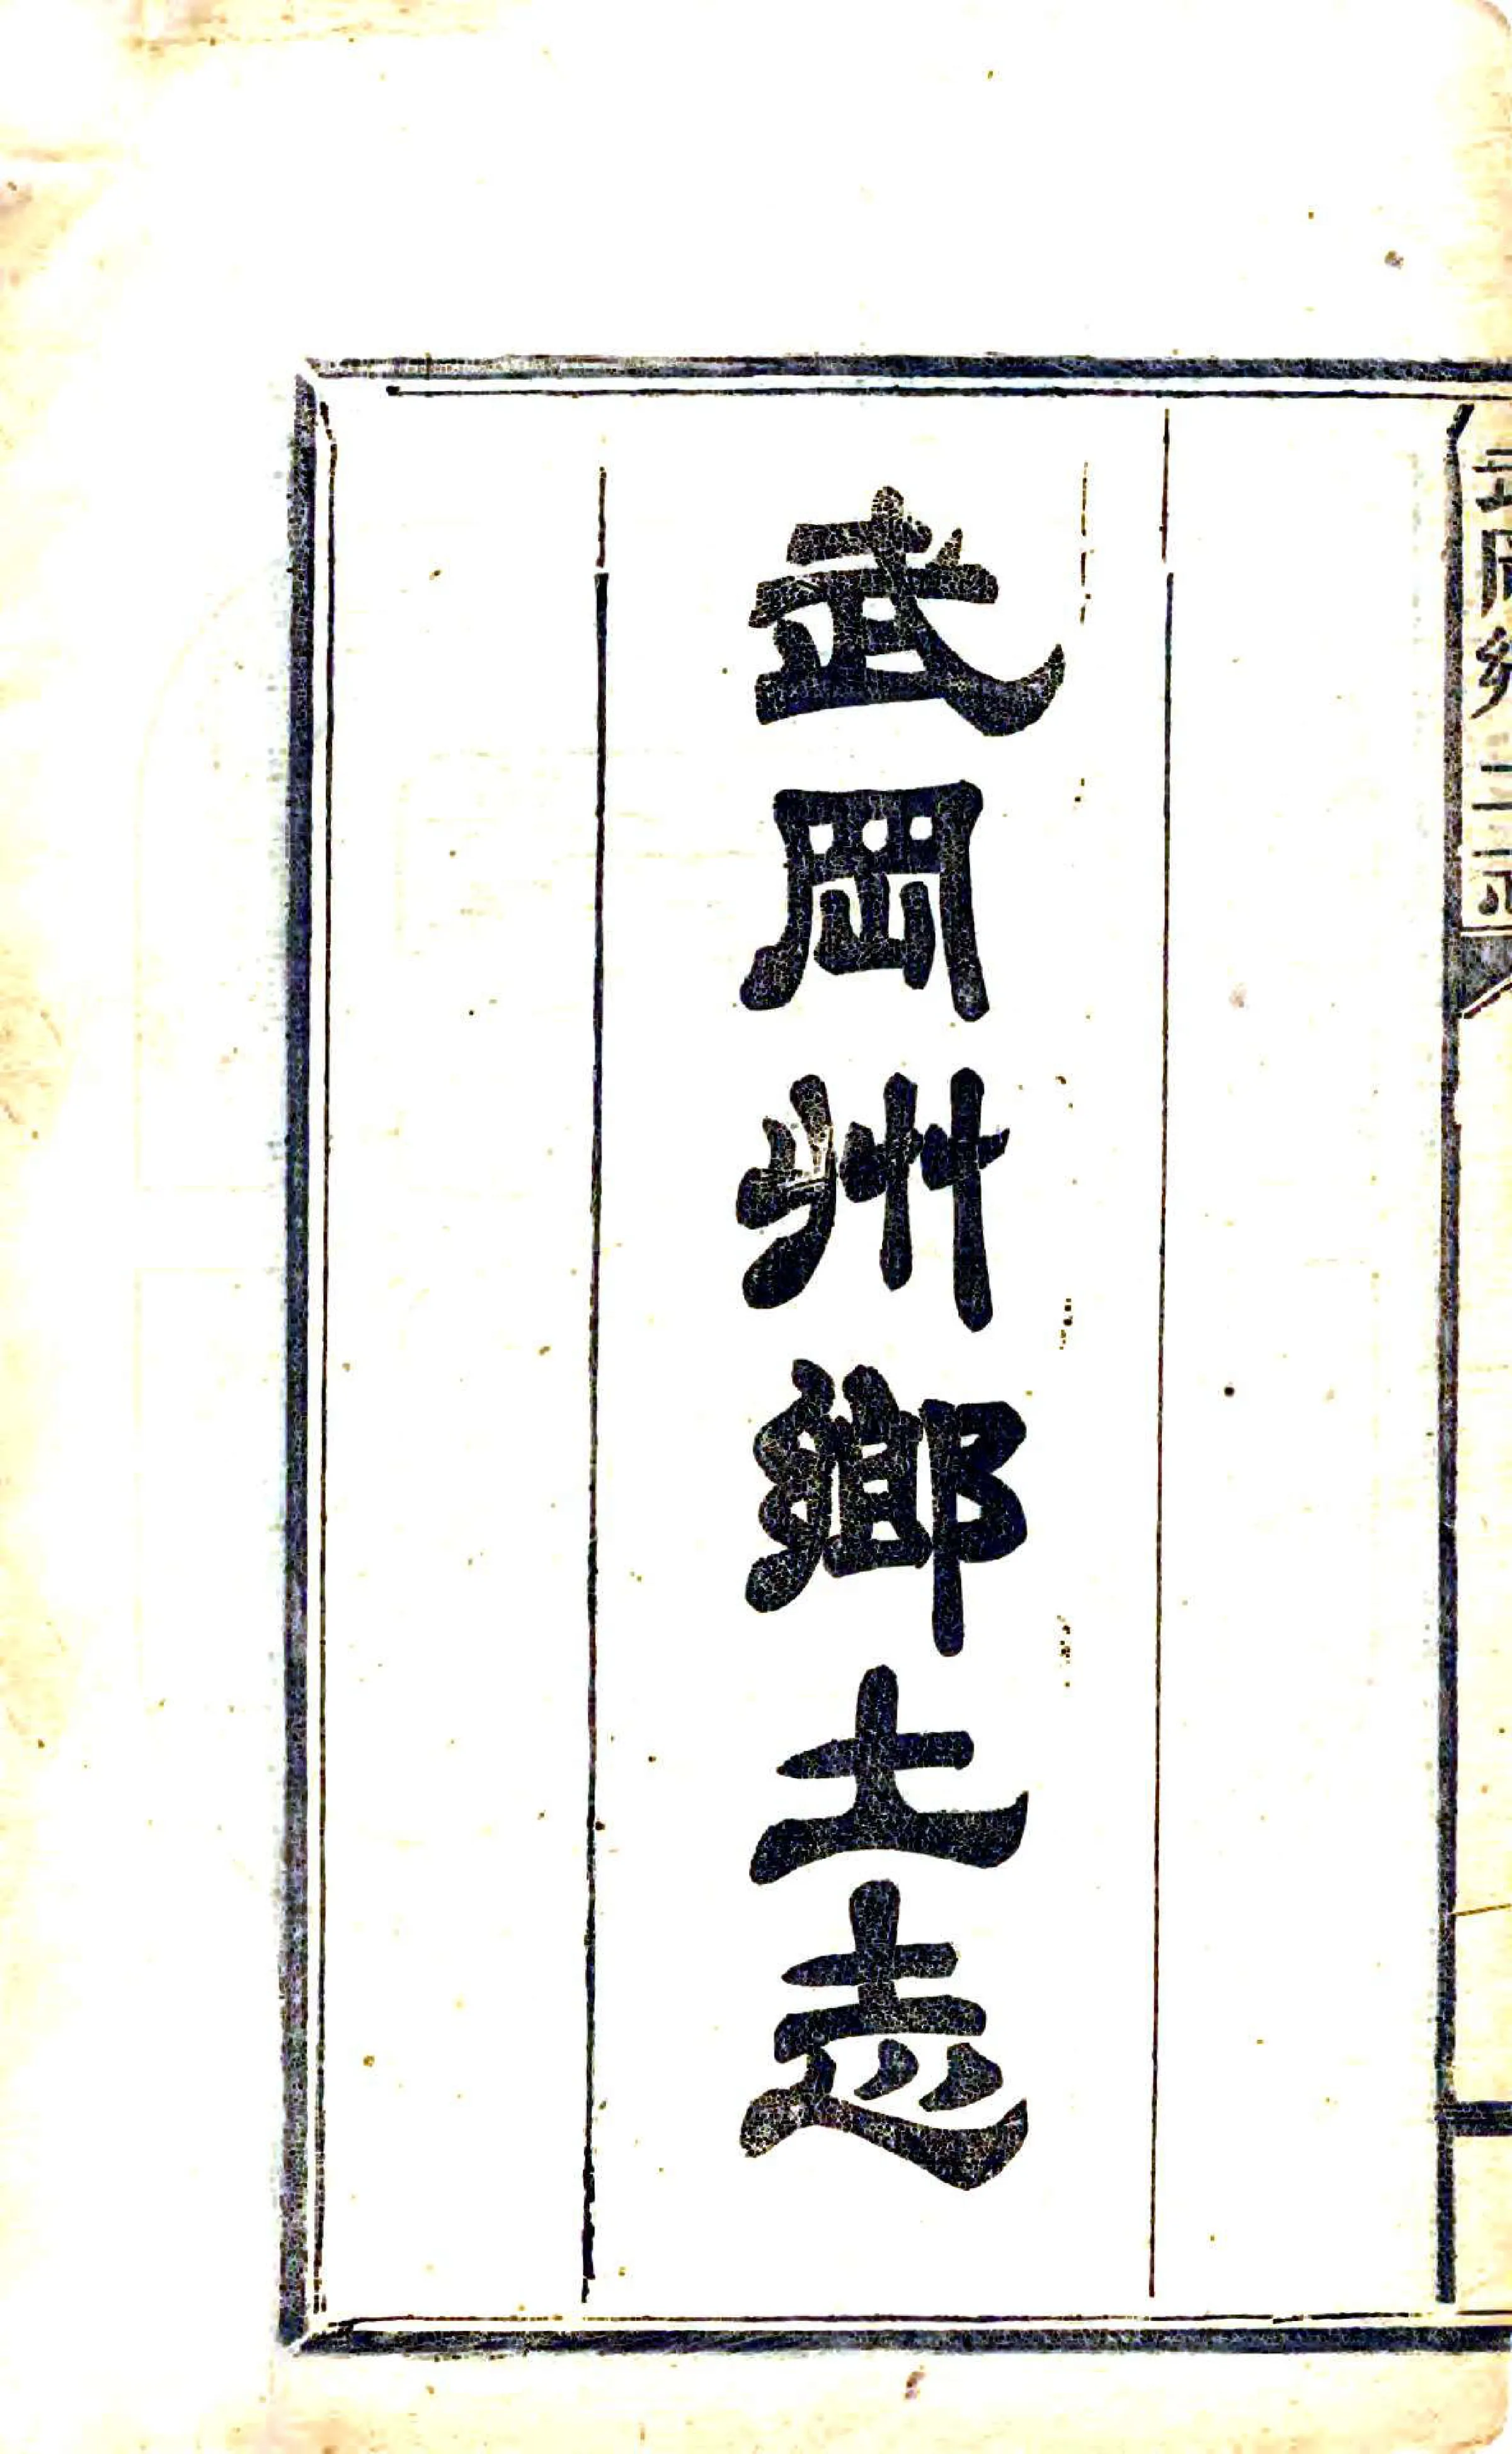 武岡州鄉土志